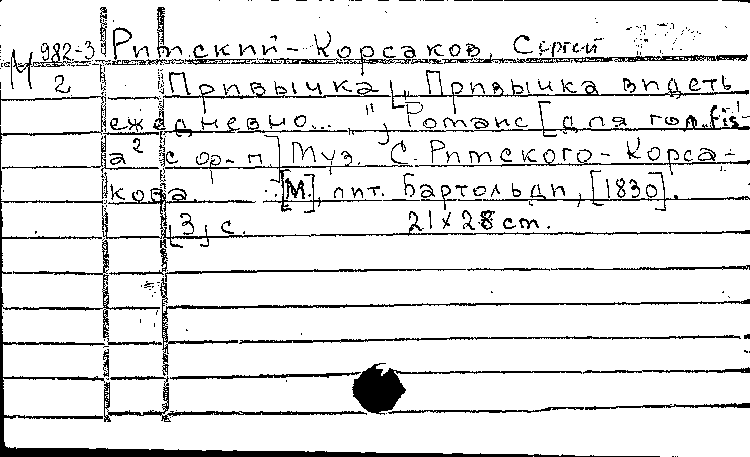 М 982-3 Римский-Корсаков, Сергей
2 Привычка [„Привычка видеть
ежедневно...“]. Романс [для гол. fis¹-
a² с ор-п.] Муз. С. Римского-Корса-
кова. [М.], лит. Бартольди, [1830].
[3] с. 21х28 cm.